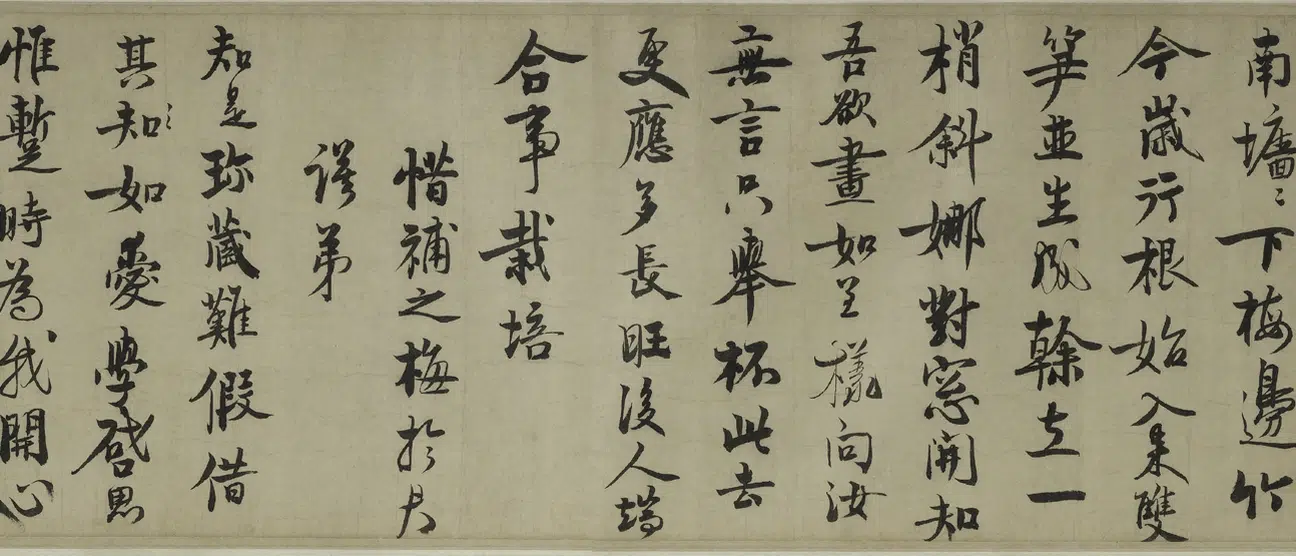 南墻〻下梅邊竹
今歲行根始入來雙
笋並生成幹立一
梢斜娜對窓開知
吾欲畫如呈樣向汝
無言只舉杯此去
更應多長旺後人端
合事栽培
惜補之梅於
弟
知是珎藏難假借
其知〻如愛學啓思
惟暫時為我開心